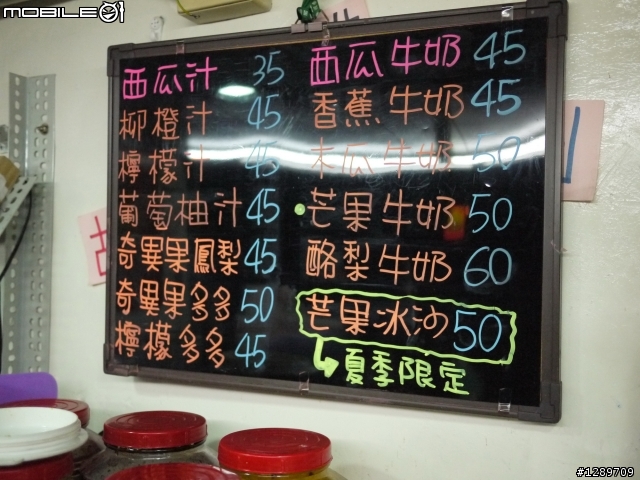 MOBILE01
西瓜汁 35
柳橙汁 45
檸檬汁 45
葡萄柚汁 45
奇異果鳳梨 45
奇異果多多 50
檸檬多多 45
西瓜牛奶 45
香蕉牛奶 45
木瓜牛奶 50
芒果牛奶 50
酪梨牛奶 60
芒果冰沙 50
夏季限定
#1289709